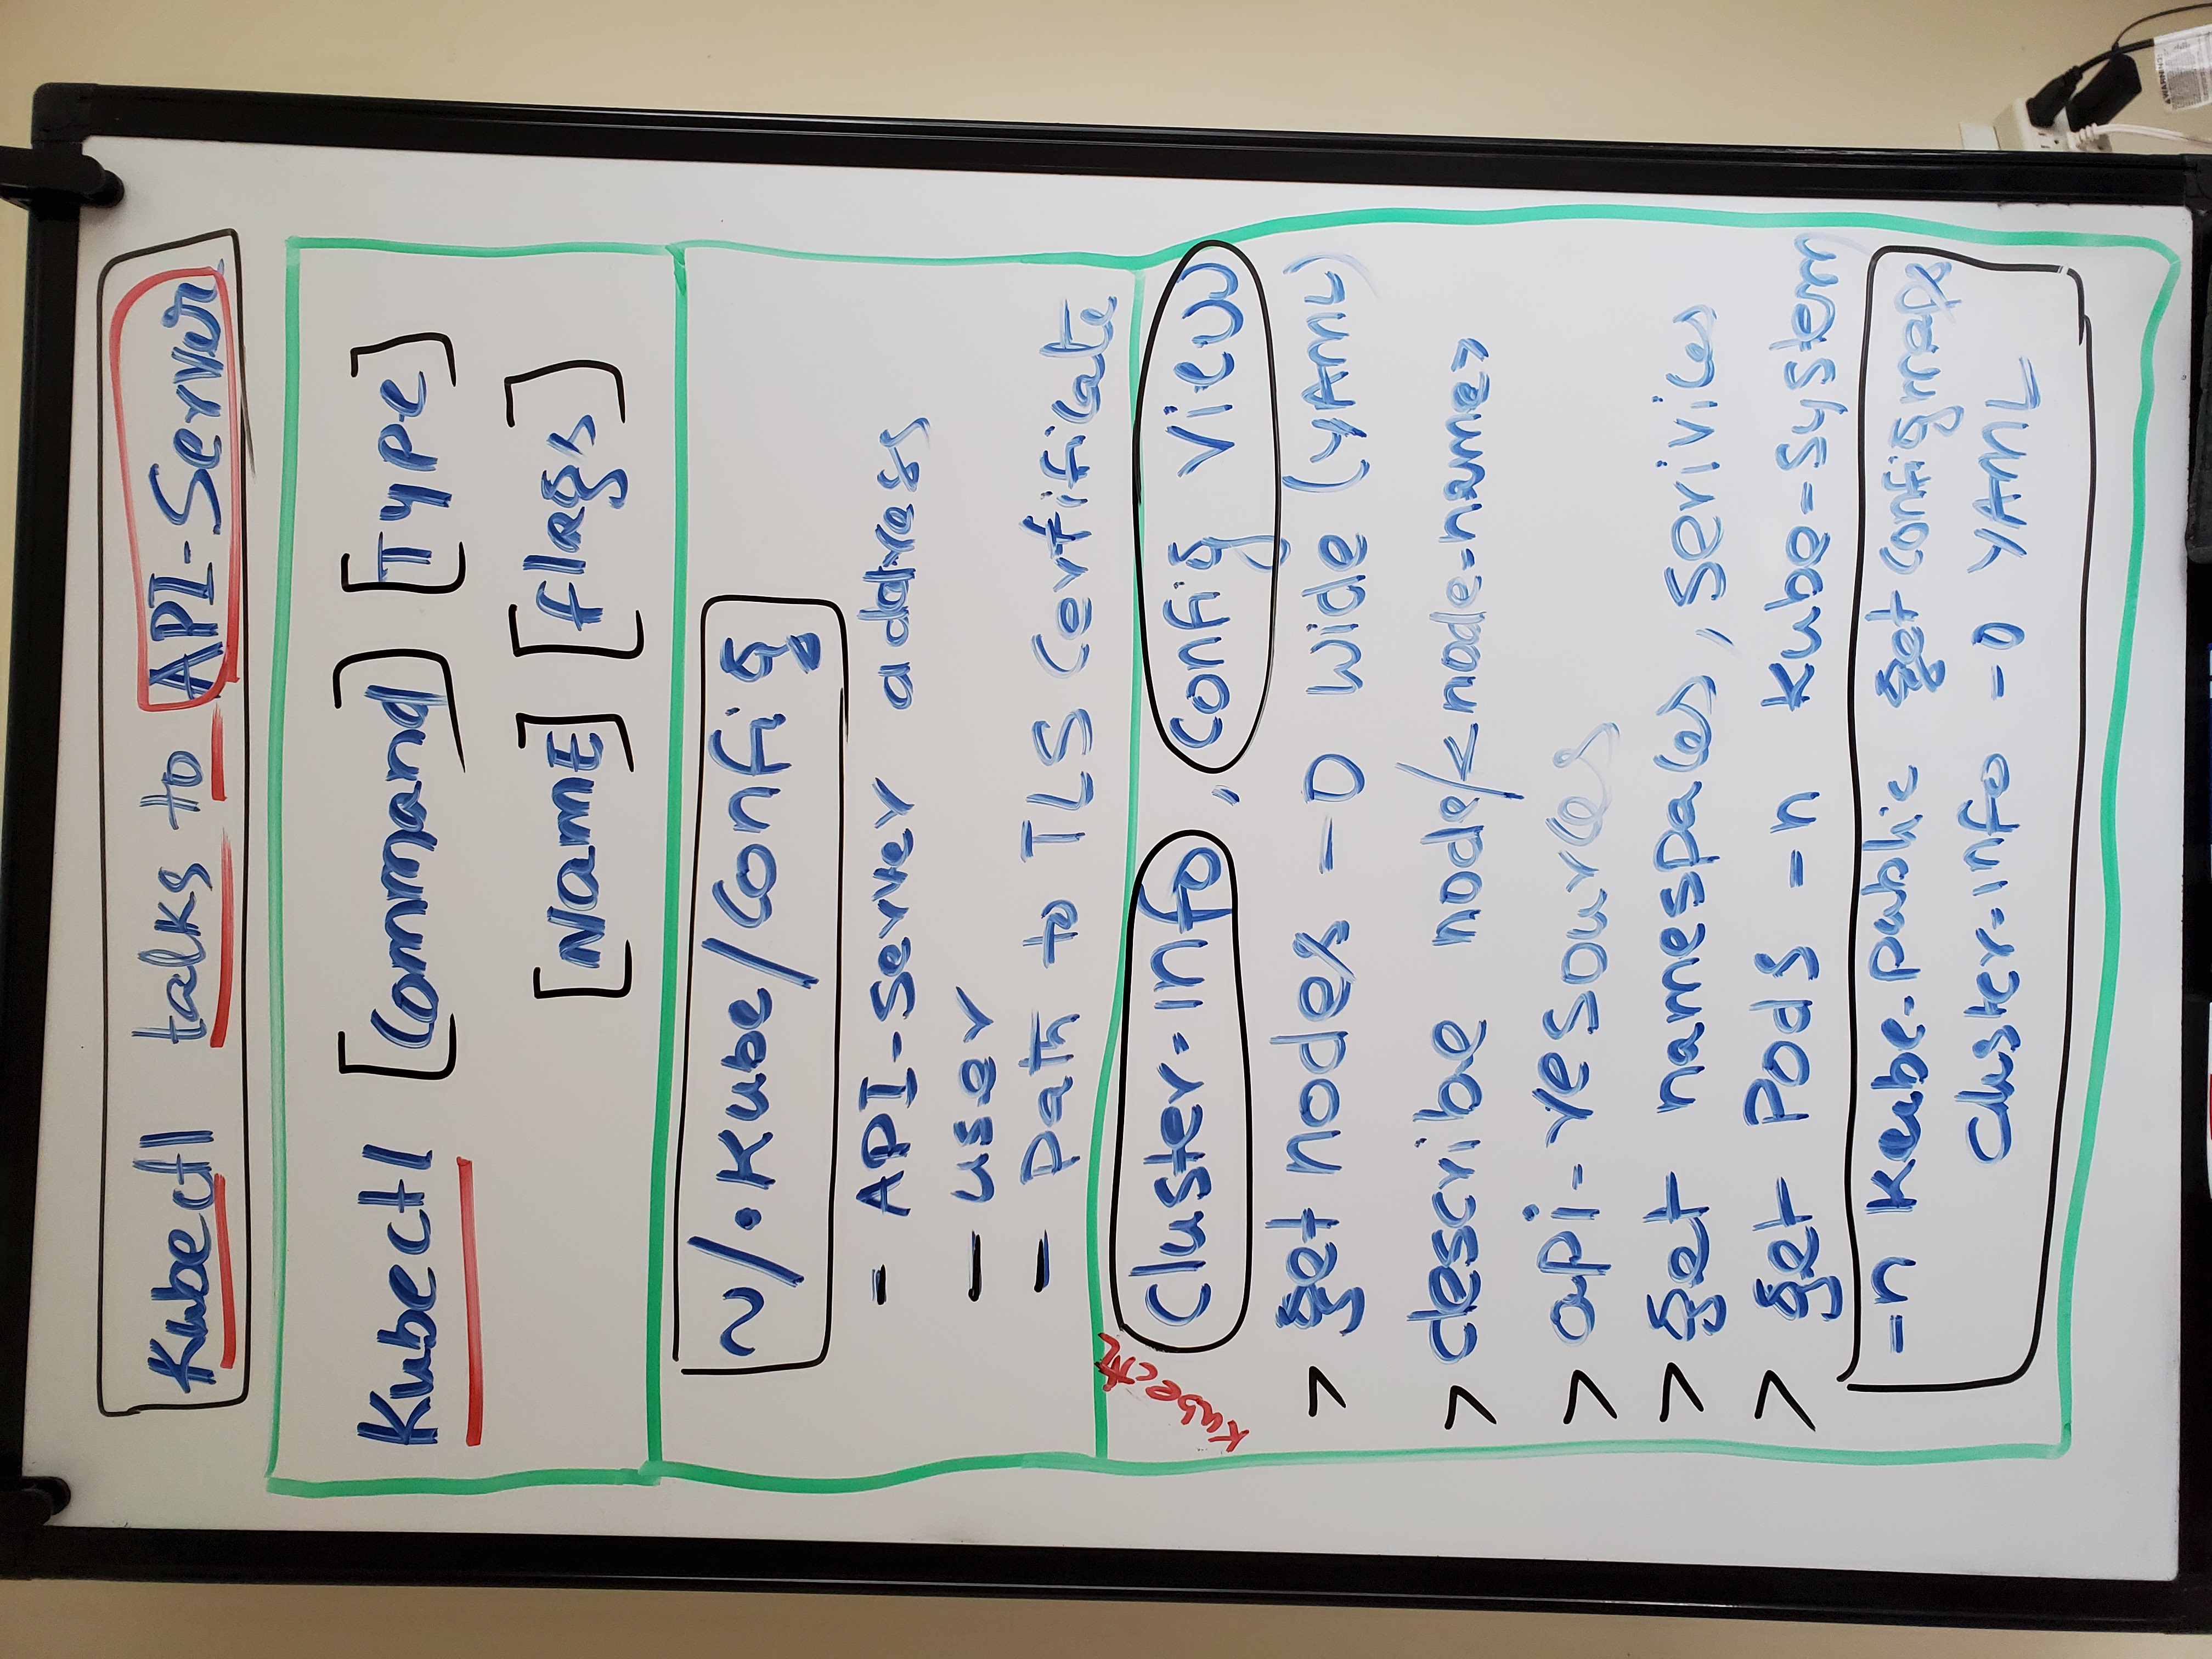 Kubectl talks to API-Server
Kubectl [Command] [Type]
[NamE] [flags]
~/.Kube/Config
- API-Server address
- user
- Path to TLS Certificate
Kubectl
Cluster-info, Config View
> get nodes -o wide (YAML)
> describe node/<node-name>
> api-resources
> get namespaces, serivices
> get Pods -n Kube-system
-n Kube-public get configmaps
Cluster-info -o YAML
WARNING